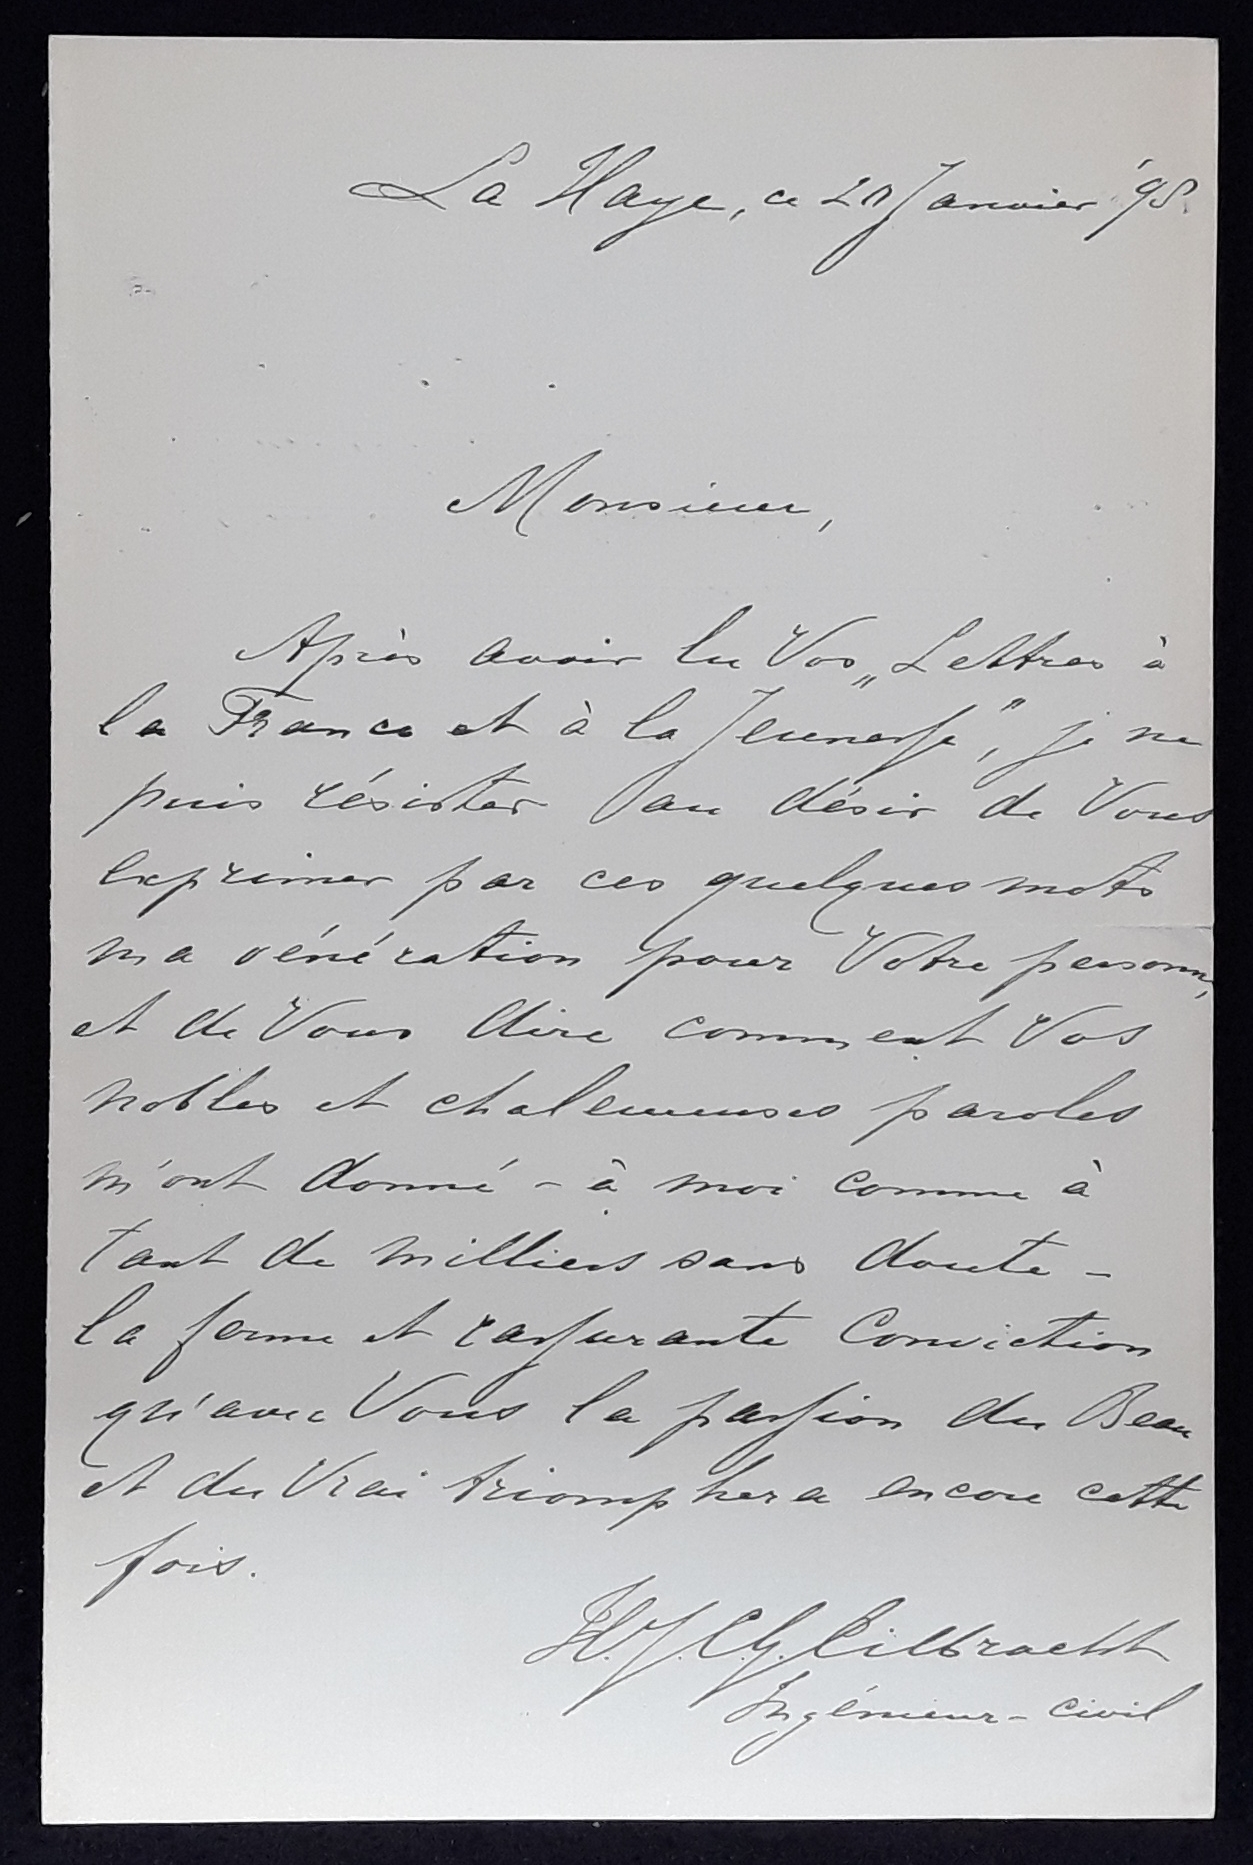 La Haye, ce 20 Janvier '98.
Monsieur,
Après avoir lu Vos „Lettres à
la France et à la Jeunesse", je ne
puis résister au désir de Vous
exprimer par ces quelques mots
ma vénération pour Votre personne,
et de Vous dire comment Vos
nobles et chaleureuses paroles
m'ont donné – à moi comme à
tant de milliers sans doute –
la ferme et rassurante Conviction
qu'avec Vous la passion du Beau
et du Vrai triomphera encore cette
fois.
H. J. C. G.
Ingénieur-civil